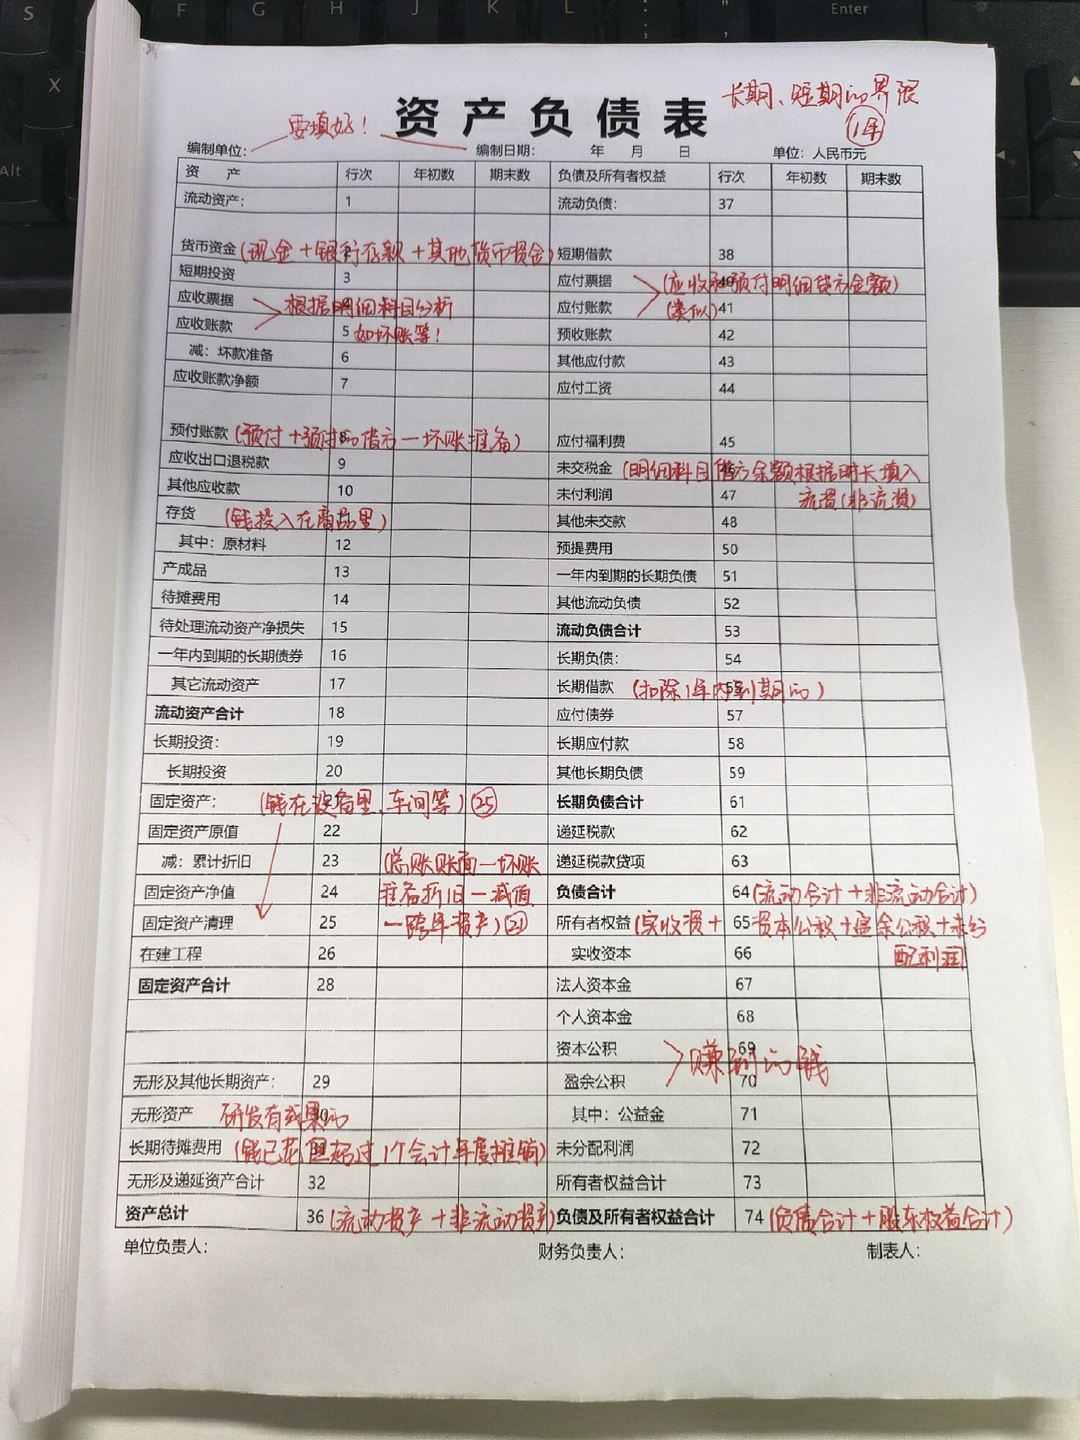 S F G H J K L : ; Enter
X
Alt
长期、短期的界限
1年
要填好！
资产负债表
编制单位： 编制日期： 年 月 日 单位：人民币元
资 产 行次 年初数 期末数 负债及所有者权益 行次 年初数 期末数
流动资产： 1 流动负债： 37
货币资金 (现金+银行存款+其他货币资金) 短期借款 38
短期投资 3 应付票据 (应收和预付明细贷方金额)
应收票据 根据明细科目分析 应付账款 (类似) 41
应收账款 5 如坏账等！ 预收账款 42
减：坏款准备 6 其他应付款 43
应收账款净额 7 应付工资 44
预付账款 (预付+预付的借方一坏账准备) 应付福利费 45
应收出口退税款 9 未交税金 (明细科目借方余额根据时长填入
其他应收款 10 未付利润 47 流资(非流资)
存货 (钱投入在商品里) 其他未交款 48
其中：原材料 12 预提费用 50
产成品 13 一年内到期的长期负债 51
待摊费用 14 其他流动负债 52
待处理流动资产净损失 15 流动负债合计 53
一年内到期的长期债券 16 长期负债： 54
其它流动资产 17 长期借款 (扣除1年内到期的)
流动资产合计 18 应付债券 57
长期投资： 19 长期应付款 58
长期投资 20 其他长期负债 59
固定资产： (钱在设备里、车间等) 25 长期负债合计 61
固定资产原值 22 递延税款 62
减：累计折旧 23 (总账账面一坏账 递延税款贷项 63
固定资产净值 24 准备折旧一减值 负债合计 64 (流动合计+非流动合计)
固定资产清理 25 一跨年资产) 21 所有者权益 (实收资+ 65 资本公积+盈余公积+未分
在建工程 26 实收资本 66 配利润
固定资产合计 28 法人资本金 67
个人资本金 68
资本公积 69 赚到的钱
无形及其他长期资产： 29 盈余公积 70
无形资产 研发有成果的 其中：公益金 71
长期待摊费用 (钱已花但超过1个会计年度摊销) 未分配利润 72
无形及递延资产合计 32 所有者权益合计 73
资产总计 36 (流动资产+非流动资产) 负债及所有者权益合计 74 (负债合计+股东权益合计)
单位负责人： 财务负责人： 制表人：